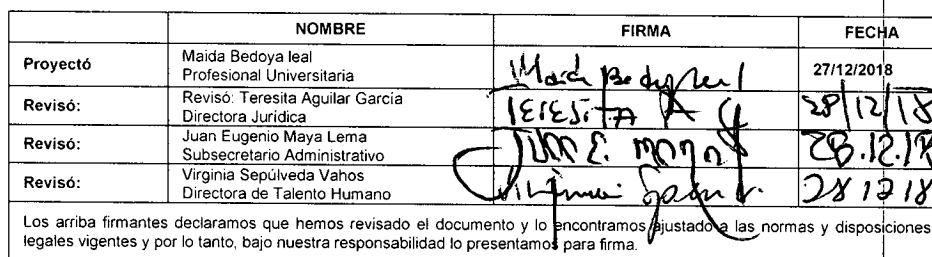 NOMBRE FIRMA FECHA
Proyectó Maida Bedoya leal
Profesional Universitaria Maida Bedoya leal 27/12/2018
Revisó: Revisó: Teresita Aguilar García
Directora Jurídica TERESITA A G 28/12/18
Revisó: Juan Eugenio Maya Lema
Subsecretario Administrativo JUAN E. MAYA 28.12.18
Revisó: Virginia Sepúlveda Vahos
Directora de Talento Humano 28 12 18
Los arriba firmantes declaramos que hemos revisado el documento y lo encontramos ajustado a las normas y disposiciones
legales vigentes y por lo tanto, bajo nuestra responsabilidad lo presentamos para firma.